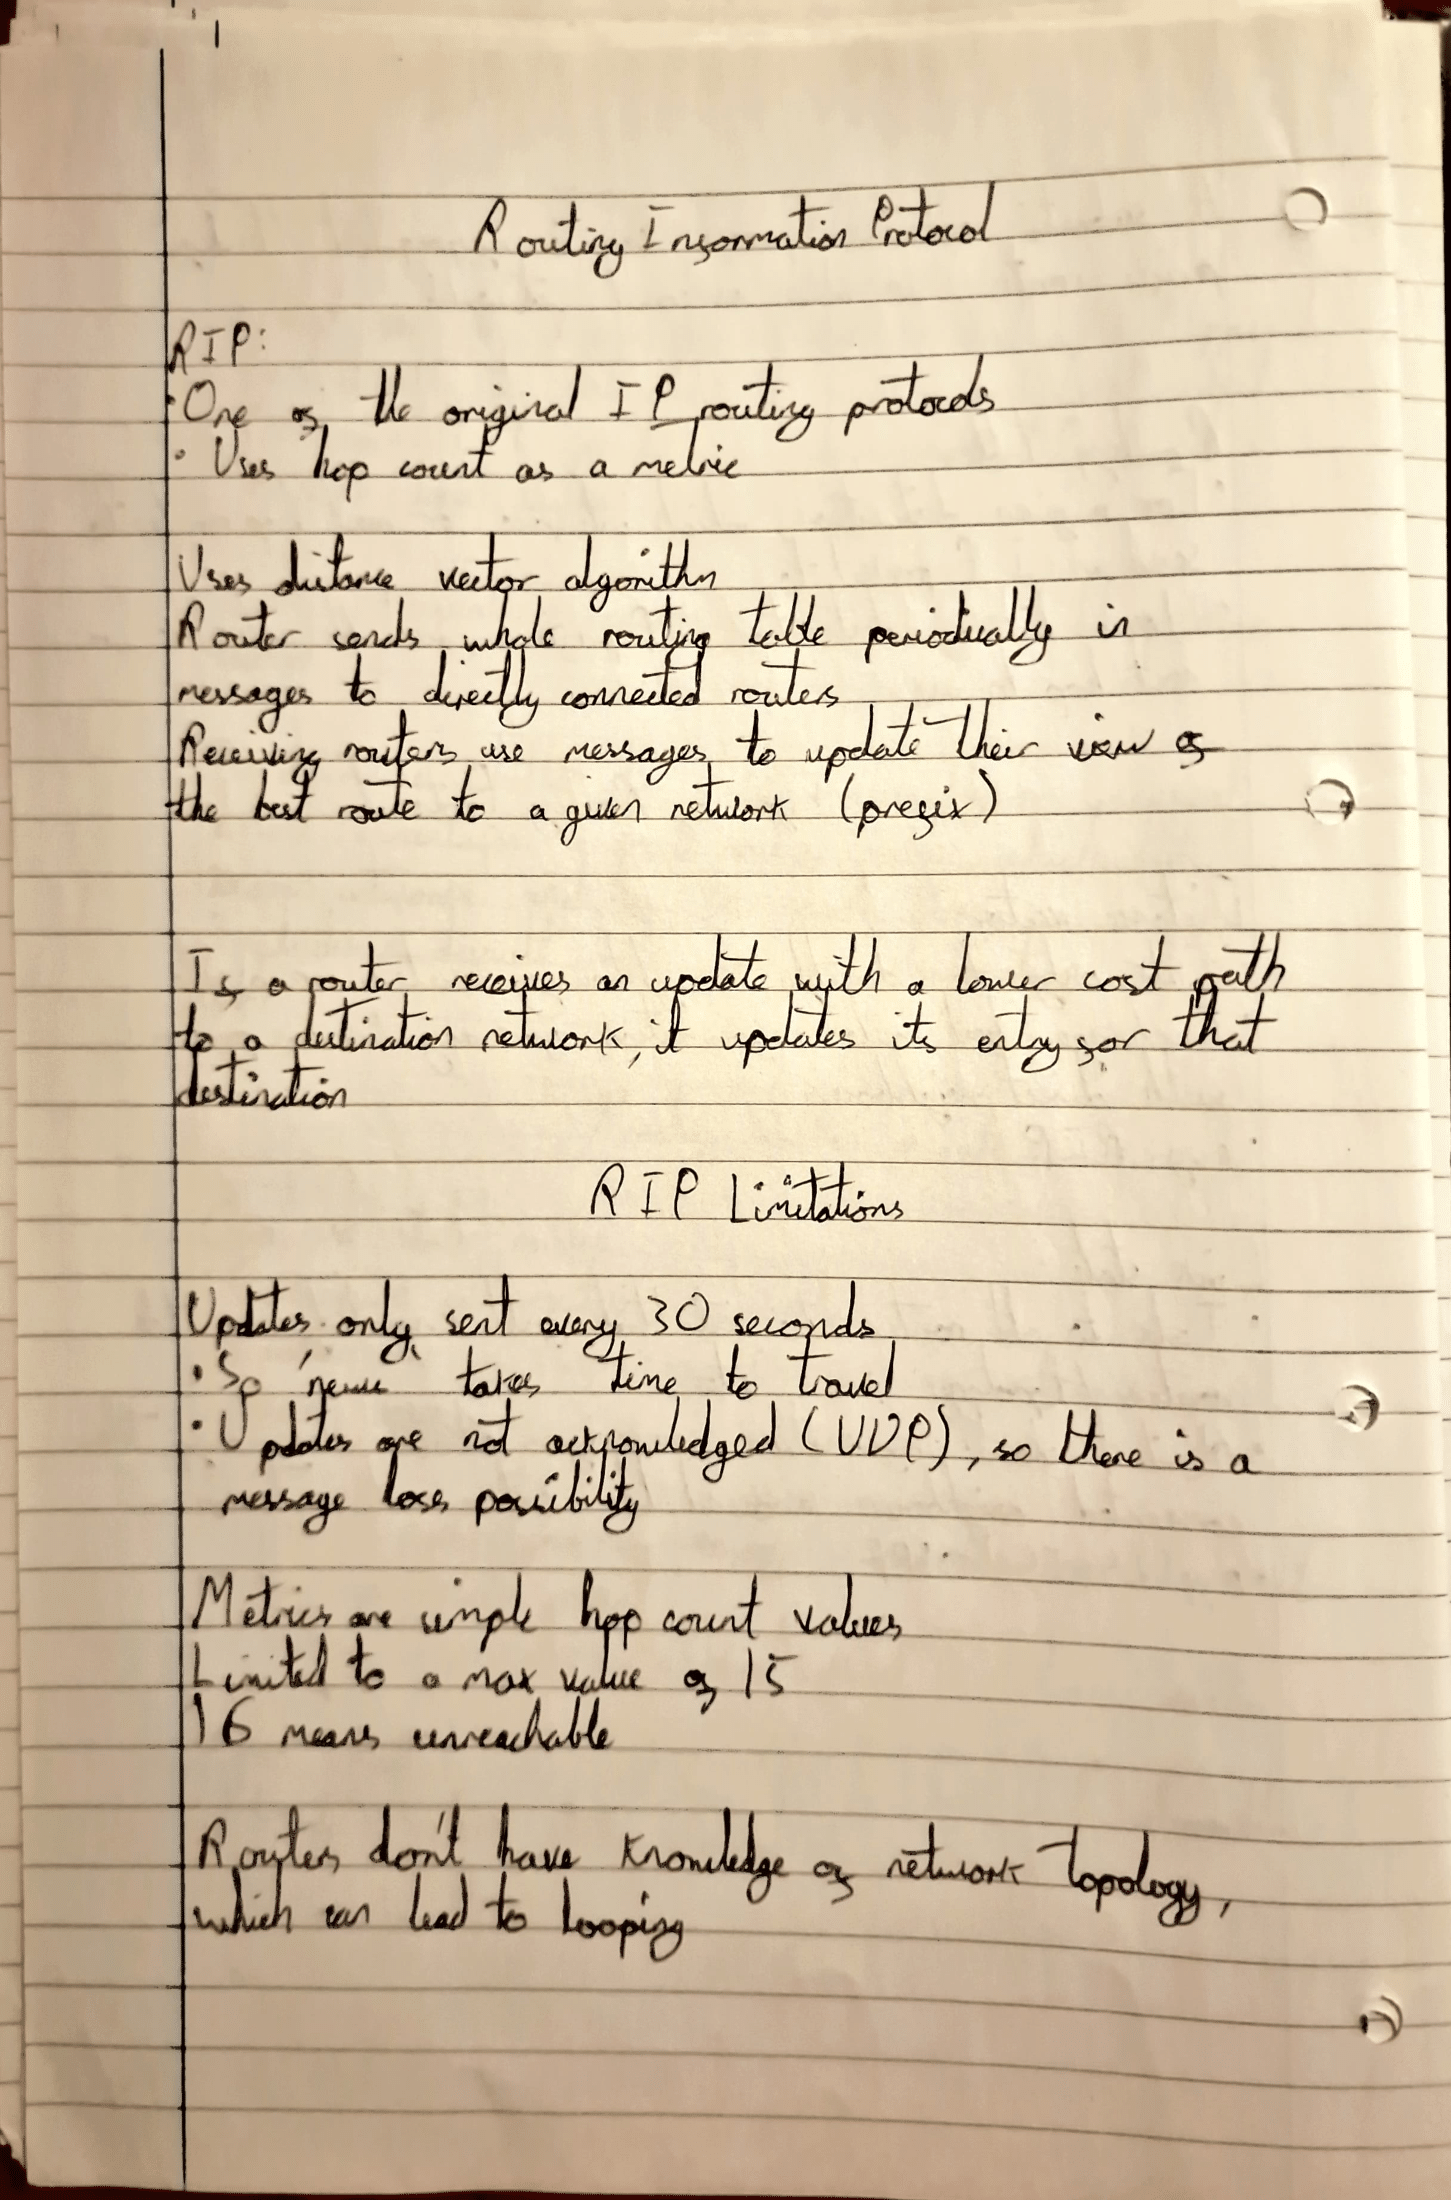 Routing Information Protocol
RIP:
· One of the original IP routing protocols
· Uses hop count as a metric
Uses distance vector algorithm
Router sends whole routing table periodically in
messages to directly connected routers
Receiving routers use messages to update their view of
the best route to a given network (prefix)
If a router receives an update with a lower cost path
to a destination network, it updates its entry for that
destination
RIP Limitations
Updates only sent every 30 seconds
· So 'news' takes time to travel
· Updates are not acknowledged (UDP), so there is a
message loss possibility
Metrics are simple hop count values
Limited to a max value of 15
16 means unreachable
Routers don't have knowledge of network topology,
which can lead to looping